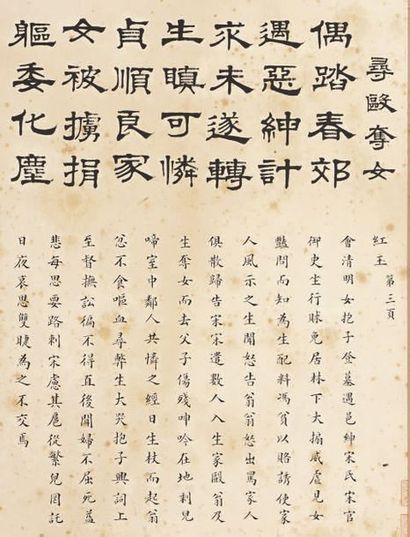 尋毆奪女
偶踏春郊
遇惡紳計
求未遂轉
生瞋可憐
貞順良家
女被擄捐
軀委化塵
紅玉　第三頁
會清明女抱子登墓遇邑紳宋氏宋官
御史坐行賕免居林下大搧威虐見女
艷問而知為生配料馮貧以賂誘使家
人風示之生聞怒告翁翁怒出罵家人
俱散歸告宋宋遣數人入生家毆翁及
生奪女而去父子傷殘呻吟在地剌兒
啼室中鄰人共憐之經日生杖而起翁
忿不食嘔血尋斃生大哭抱子興詞上
至督撫訟徧不得直後聞婦不屈死益
悲每思要路刺宋慮其扈從繁兒罔託
日夜哀思雙睫為之不交焉